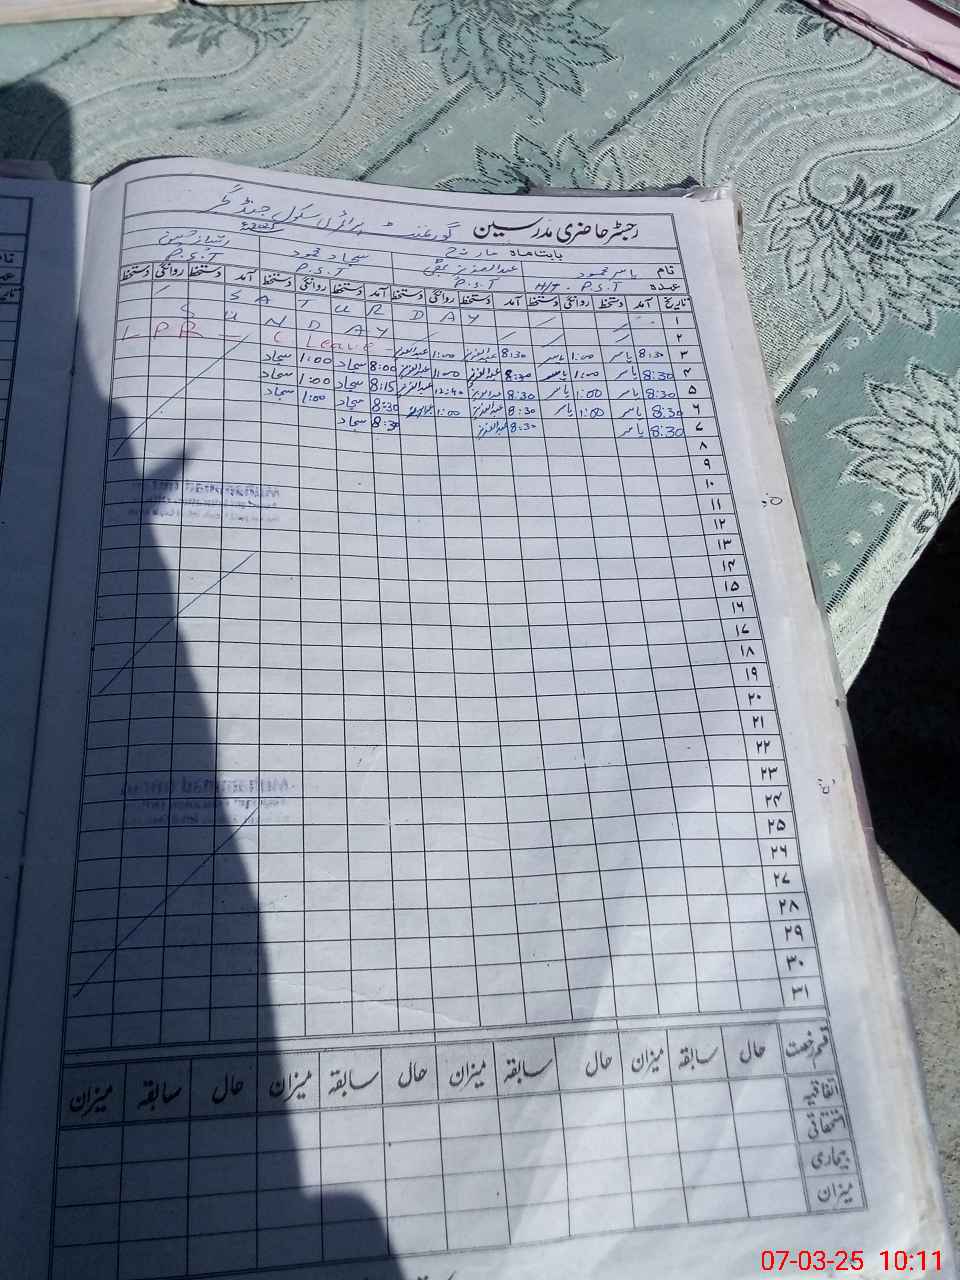 رجسٹر حاضری مدرسین گورنمنٹ پرائمری سکول
بابت ماہ مارچ 2025ء
نام یاسر محمود عبدالعزیز سجاد محمود
عہدہ H/T . P.S.T P.S.T P.S.T P.S.T
تاریخ آمد دستخط روانگی دستخط آمد دستخط روانگی دستخط آمد دستخط روانگی دستخط آمد دستخط روانگی دستخط
۱ SATURDAY
۲ SUNDAY
۳ 8:30 یاسر 1:00 یاسر 8:30 عبدالعزیز 1:00 عبدالعزیز C Leave LPR
۴ 8:30 یاسر 1:00 یاسر 8:30 عبدالعزیز 1:00 عبدالعزیز 8:00 سجاد 1:00 سجاد
۵ 8:30 یاسر 1:00 یاسر 8:30 عبدالعزیز 12:40 عبدالعزیز 8:15 سجاد 1:00 سجاد
۶ 8:30 یاسر 1:00 یاسر 8:30 عبدالعزیز 1:00 8:30 سجاد 1:00 سجاد
۷ 8:30 یاسر 8:30 عبدالعزیز 8:30 سجاد
۸
۹
۱۰
۱۱
۱۲
۱۳
۱۴
۱۵
۱۶
۱۷
۱۸
۱۹
۲۰
۲۱
۲۲
۲۳
۲۴
۲۵
۲۶
۲۷
۲۸
۲۹
۳۰
۳۱
قسم رخصت حال سابقہ میزان حال سابقہ میزان حال سابقہ میزان حال سابقہ میزان
اتفاقیہ
استحقاقی
بیماری
میزان
07-03-25 10:11